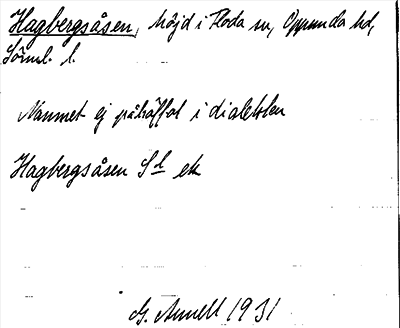 Hagbergsåsen, höjd i Floda sn, Oppunda hd,
Sörml. l.
Namnet ej påträffat i dialekten
Hagbergsåsen Sl ek
G. Arnell 1931